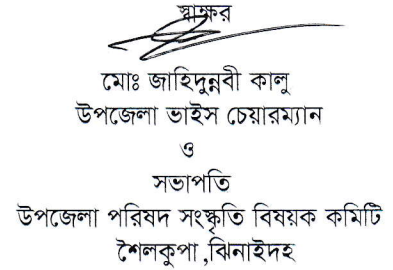 স্বাক্ষর
মোঃ জাহিদুন্নবী কালু
উপজেলা ভাইস চেয়ারম্যান
ও
সভাপতি
উপজেলা পরিষদ সংস্কৃতি বিষয়ক কমিটি
শৈলকুপা,ঝিনাইদহ